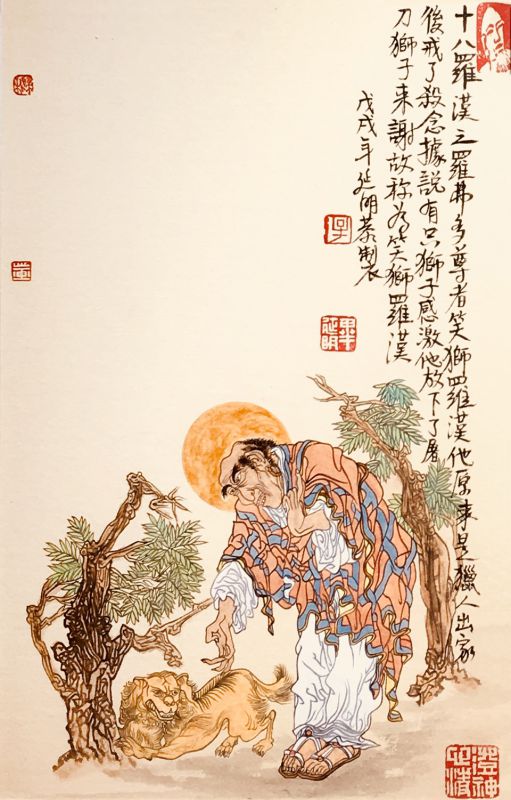 十八羅漢之羅弗多尊者笑獅羅漢他原来是獵人出家
後戒了殺念據説有只獅子感激他放下了屠
刀獅子来謝故称为笑獅羅漢
戊戌年延明恭製
延明
澄神